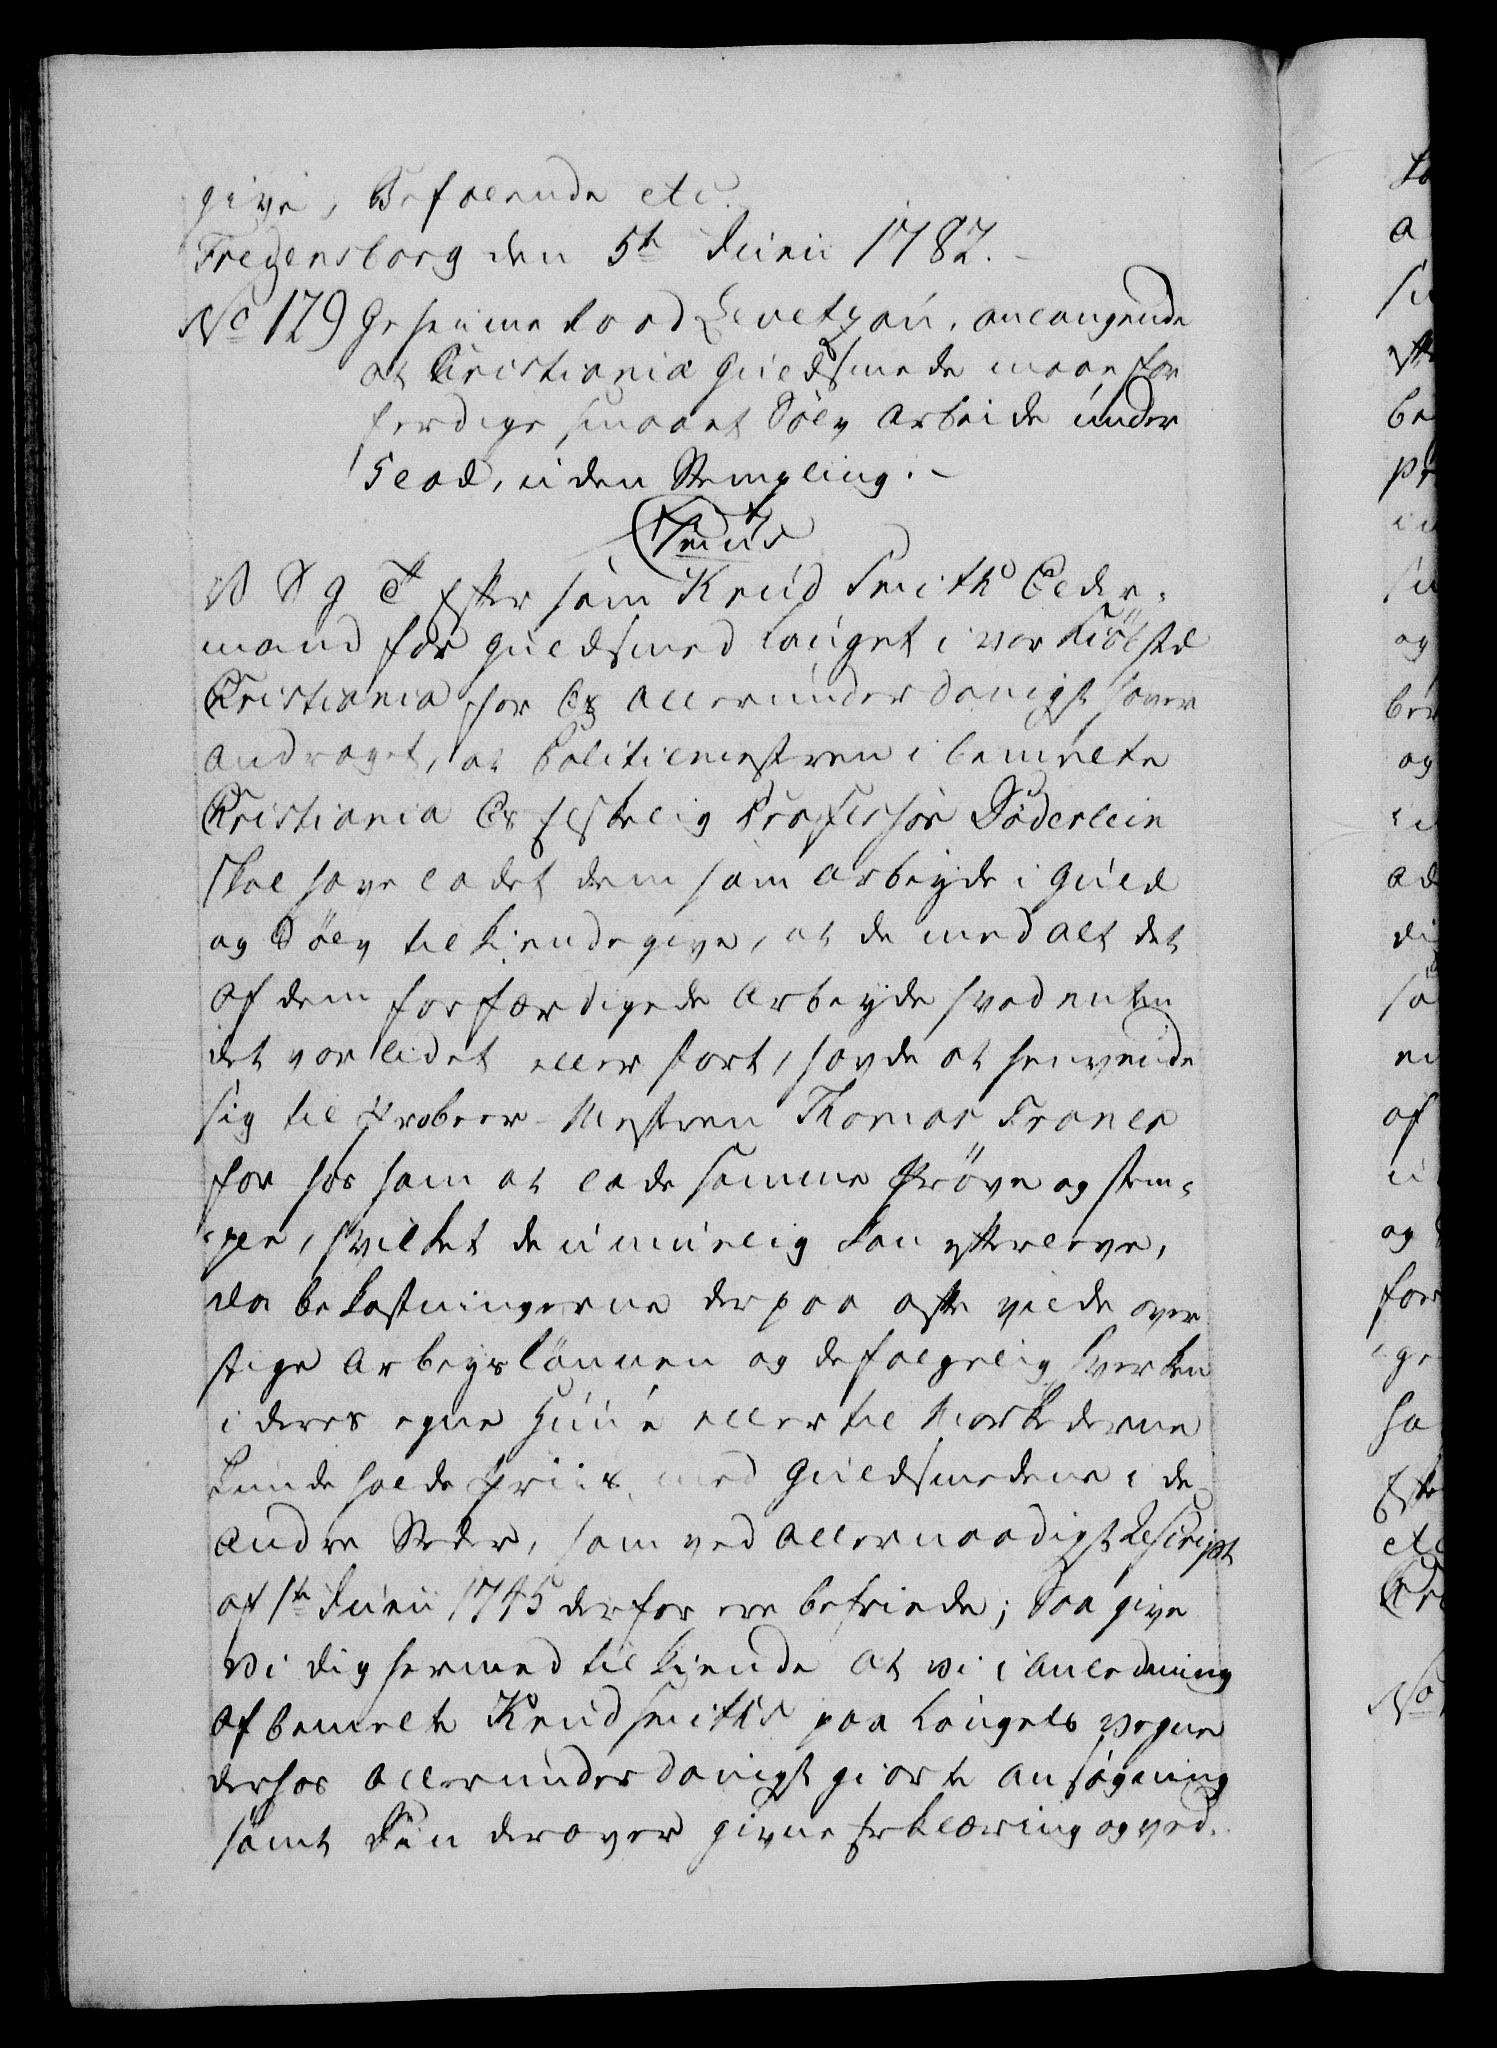 givi, Befalende etc.
Fredensborg den 5te Junii 1782.
No 129 Geheime Raad Levetzau, anlangende
at Christiania Guldsmede maae for
ferdige smaaet Sölv Arbeide under
5 Lod, uden Stempling. -
V S g T Efter som Knud Smith Older-
mand for Guldsmed Lauget i vor Kiöbsted
Christiania for Os allerunderdanigst haver
andraget, at Politiemestren i bemelte
Christiania Os elskelig Professor Söderlein
skal have ladet dem som arbeyde i Guld
og Sölv tilkiendegive, at de med alt det
af dem forfærdigede Arbeyde hvad enten
det var lidet eller stort, havde at henvende
sig til Probeer-Mestren Thomas
for hos ham at lade samme Pröve og stem-
ple, hvilket de umuelig kan efterleve,
da bekostningerne derpaa ofte vilde over
stige Arbeyslönnen og defølgelig hverken
i deres egne Huuse eller til Markederne
kunde holde Priis med Guldsmedene i de
andre Steder, som ved allernaadigst Rescript
af 1te Junii 1745 derfor ere befriede; Saa give
Vi dig hermed tilkiende at vi i anledning
af bemelte Knud Smiths paa Laugets vegne
derhos allerunderdanigst giorte ansögning
samt Din derover givne Erklæring og ved.